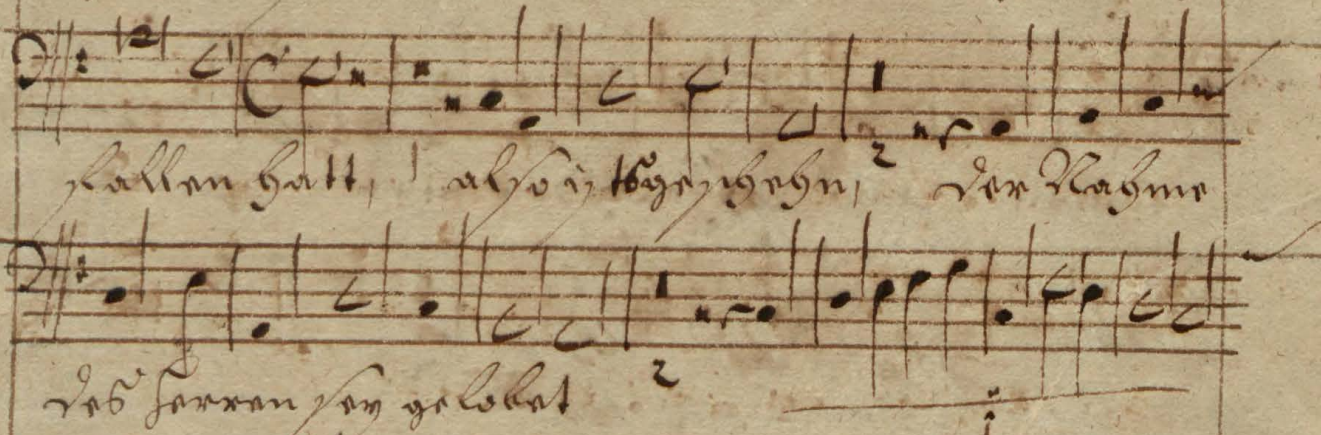 fallen hatt, also ists geschehn, Der Nahme
2
des Herren sey gelobet
2